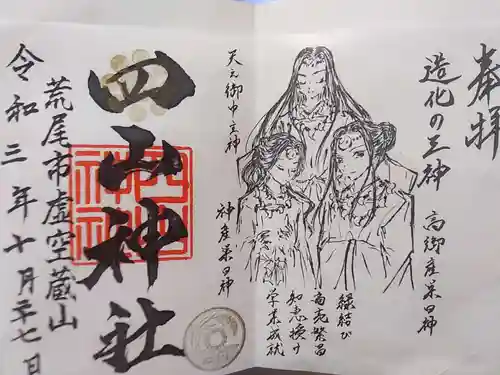 奉拝
造化の三神
高御産巣日神
天之御中主神
神産巣日神
縁結び
商売繁昌
知恵授け
学業成就
四山神社
四山神社
荒尾市虚空蔵山
令和三年十月二十七日